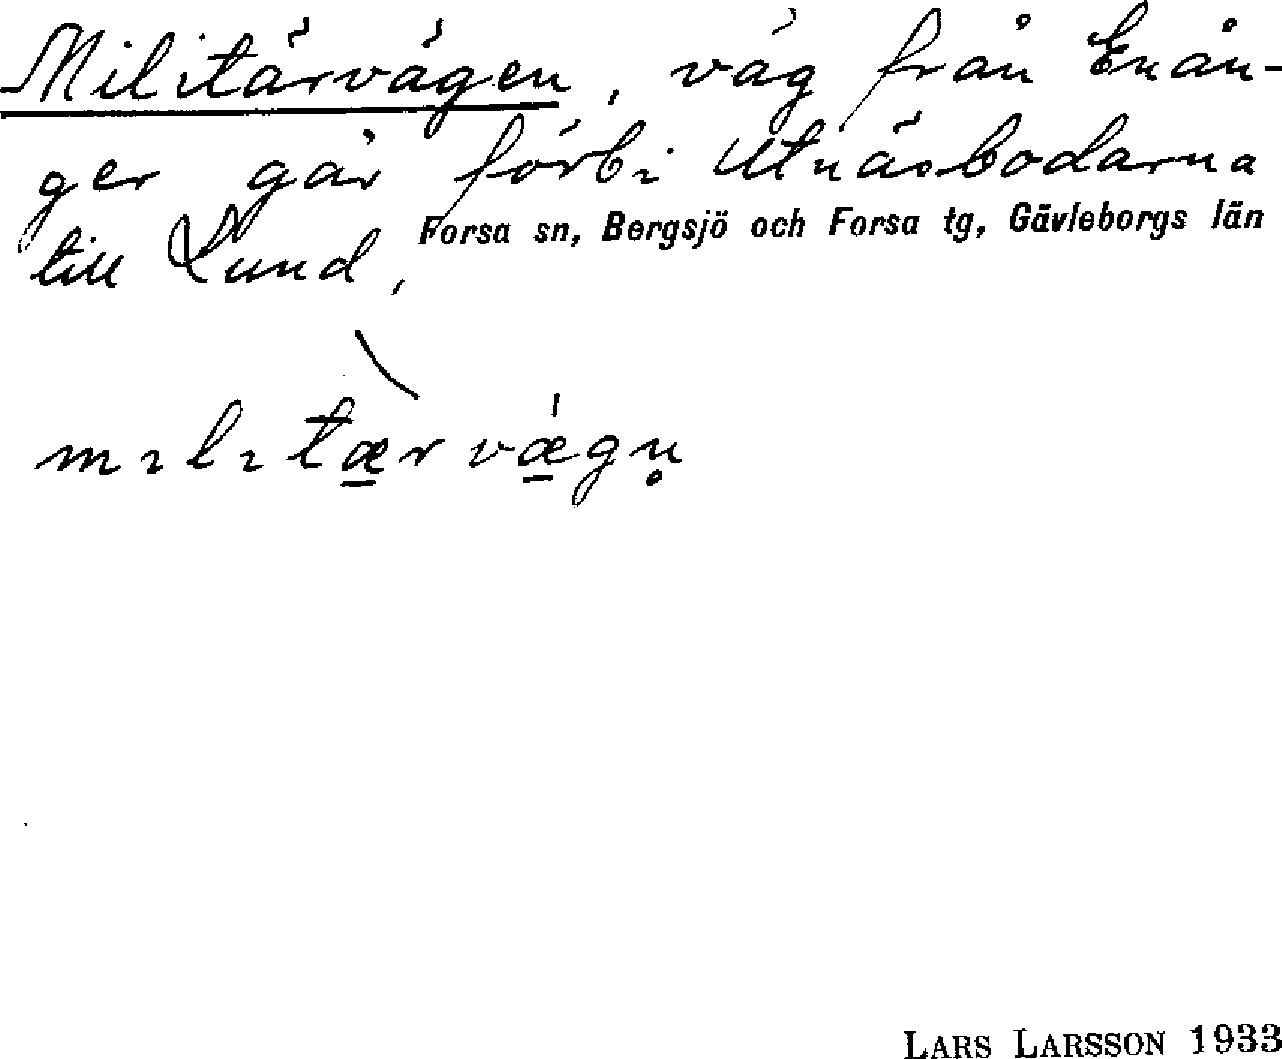 Militärvägen, väg från Enån-
ger går förbi Utnäsbodarna
till Lund,
Forsa sn, Bergsjö och Forsa tg, Gävleborgs län
mılıtæ̠r vǽ̠gn̥
LARS LARSSON 1933